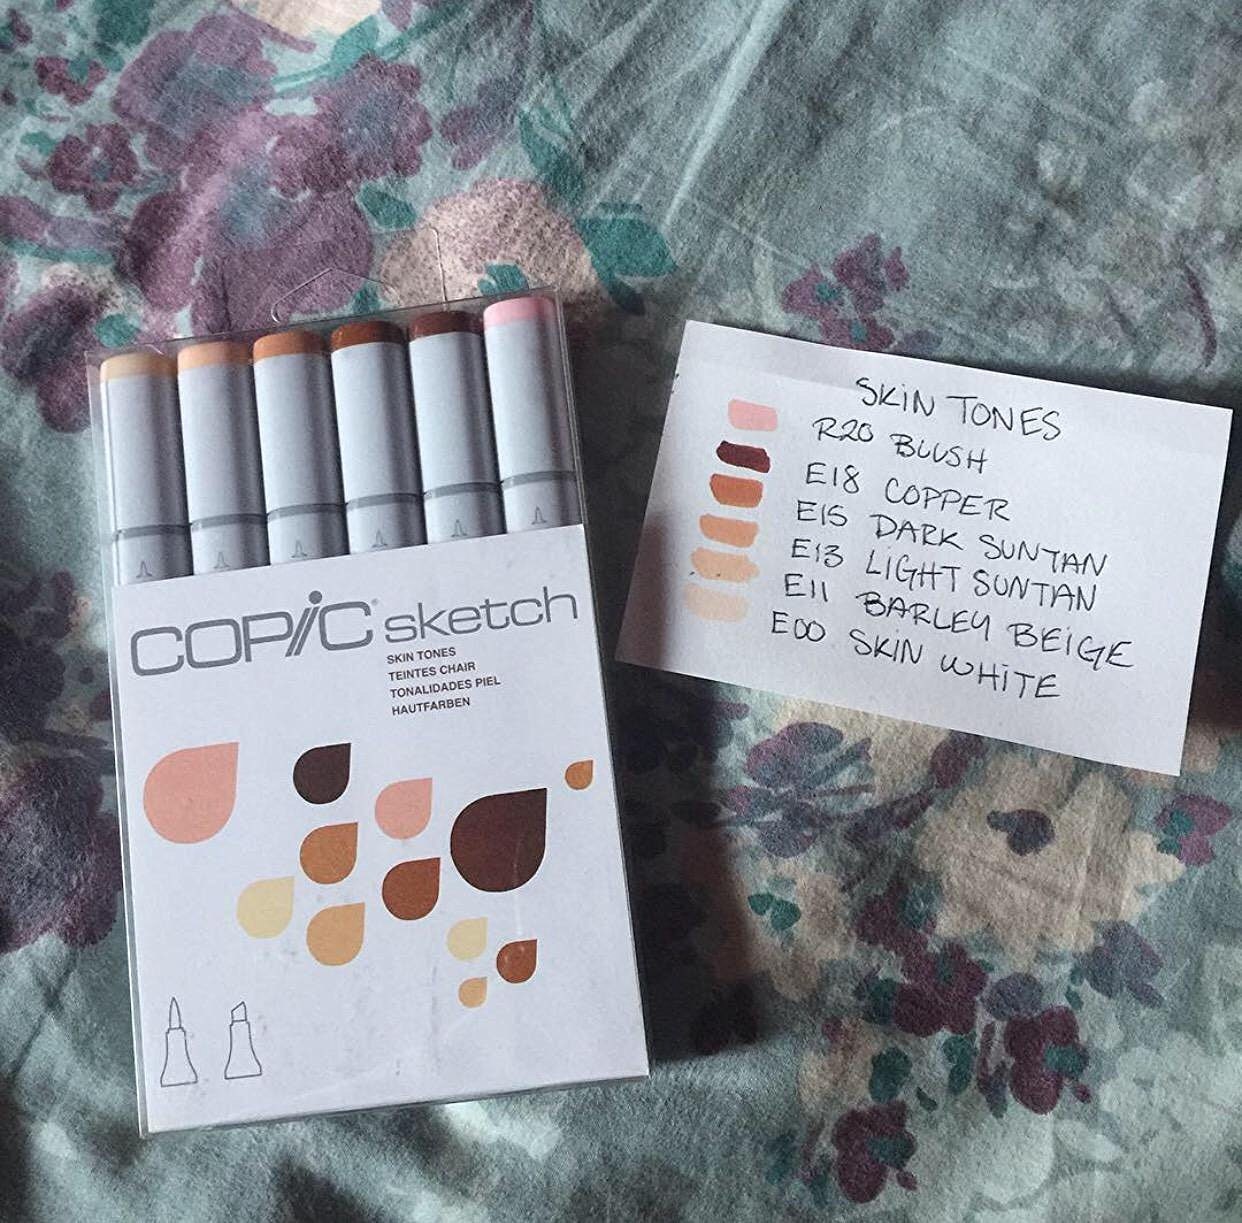 COPIC sketch
SKIN TONES
TEINTES CHAIR
TONALIDADES PIEL
HAUTFARBEN
SKIN TONES
R20 BLUSH
E18 COPPER
E15 DARK SUNTAN
E13 LIGHT SUNTAN
E11 BARLEY BEIGE
E00 SKIN WHITE